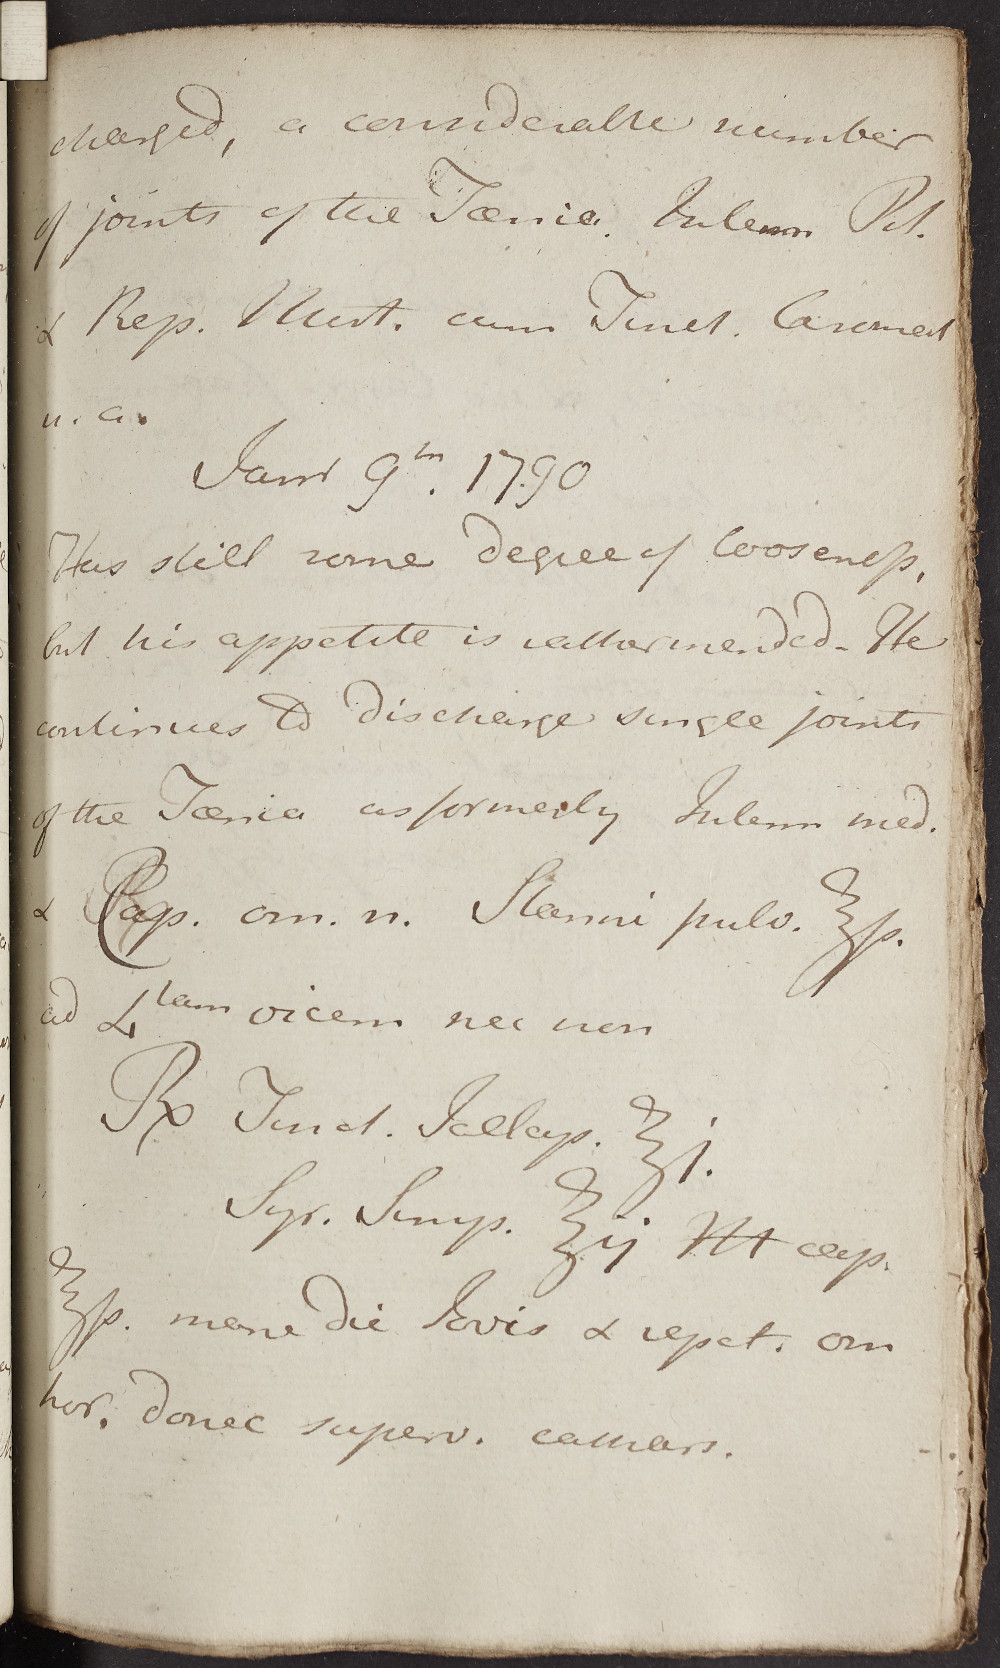 charged, a considerable number
of joints of the Tænia. Interm Pil.
& Rep. Mist. cum Tinct. Caromest
u. a.
Janr 9th. 1790
Has still some degree of looseness,
but his appetite is rather mended. He
continues to discharge single joints
of the Tænia as formerly Interm med.
& Cap. om. n. Stanni pulv. ℥ß.
ad 4tam vicem nec non
Rx Tinct. Jallap. ℥j.
Syr. Simp. ℥ij M cap.
℥ß. mane die Jovis & repet. om
hor. donec superv. cathars.